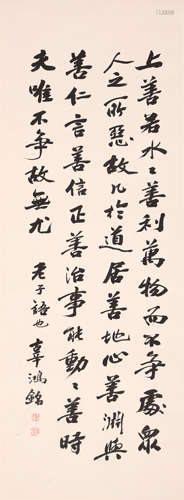 上善若水〻善利萬物而不爭處衆
人之所惡故几於道居善地心善淵與
善仁言善信正善治事能動〻善時
夫唯不爭故無尤
老子語也 辜鴻銘